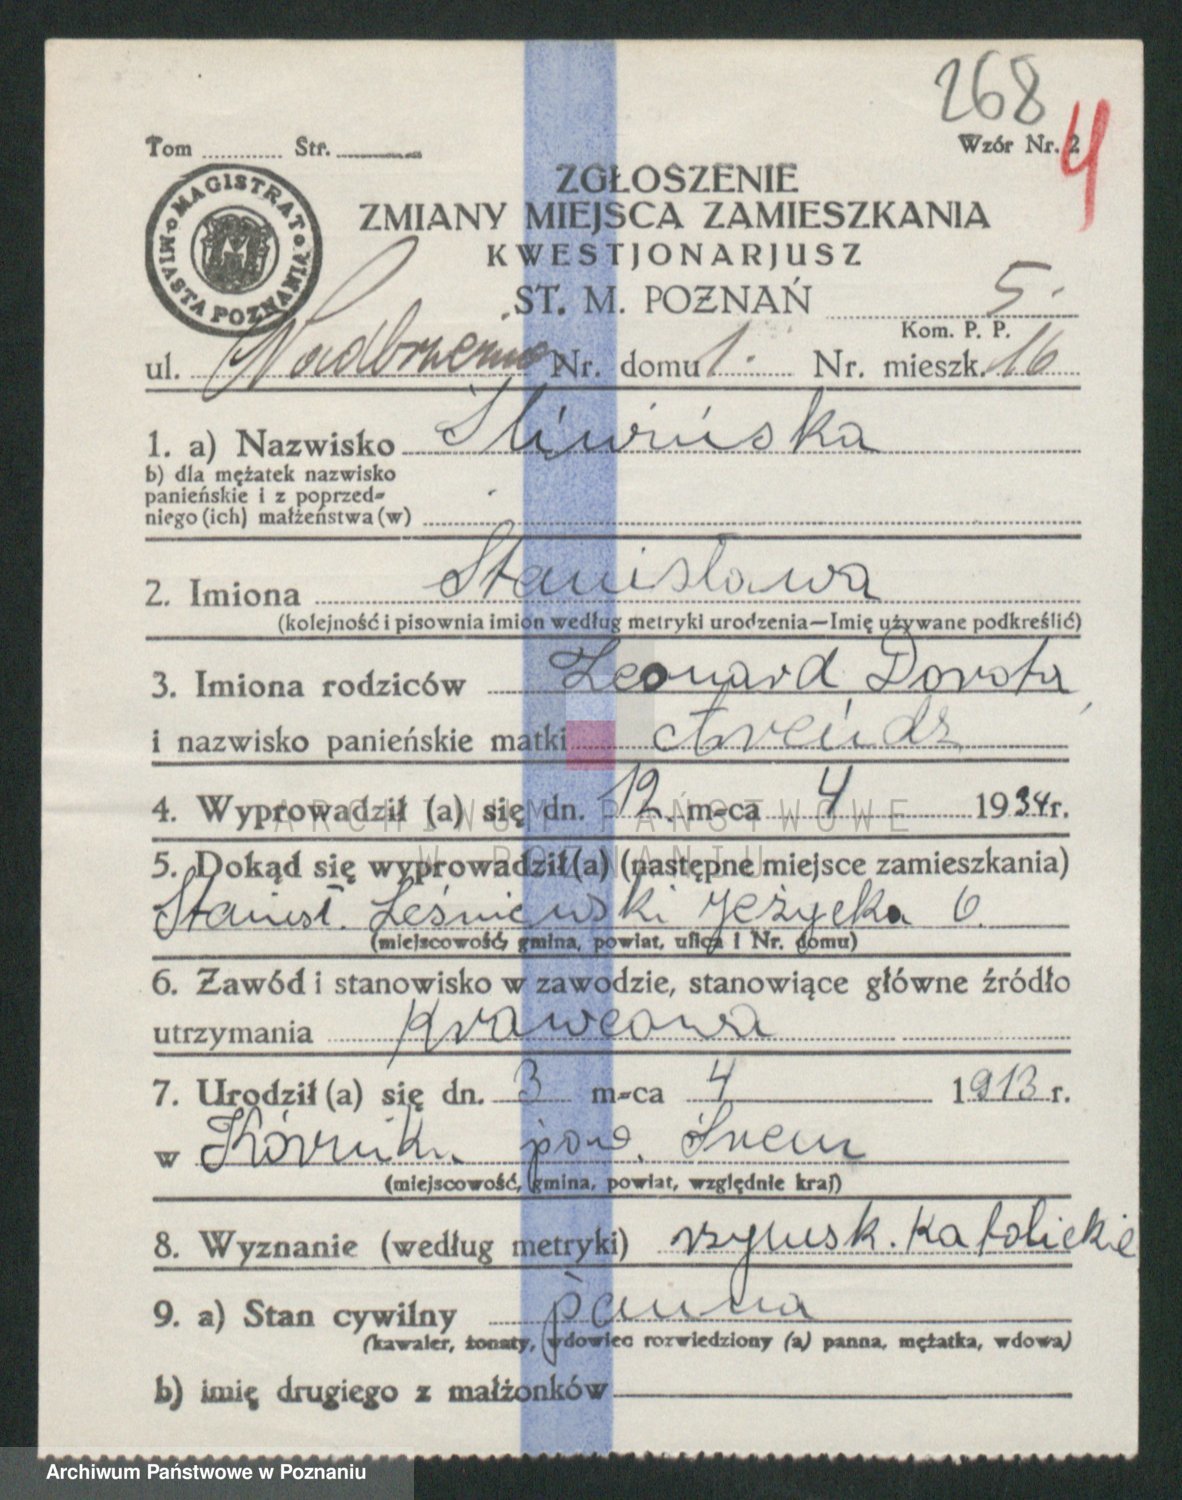 268
Tom ........... Str. ...........
Wzór Nr. 2
4
MAGISTRAT MIASTA POZNANIA
ZGŁOSZENIE
ZMIANY MIEJSCA ZAMIESZKANIA
KWESTJONARJUSZ
ST. M. POZNAŃ 5.
Kom. P. P.
ul. Nr. domu 1. Nr. mieszk. 16
1. a) Nazwisko Śliwińska
b) dla mężatek nazwisko
panieńskie i z poprzed-
niego (ich) małżeństwa (w)
2. Imiona Stanisława
(kolejność i pisownia imion według metryki urodzenia—Imię używane podkreślić)
3. Imiona rodziców Leonard Dorota
i nazwisko panieńskie matki
4. Wyprowadził (a) się dn. 12. m-ca 4 1934 r.
ARCHIWUM PAŃSTWOWE
W POZNANIU
5. Dokąd się wyprowadził(a) (następne miejsce zamieszkania)
Stanisł. Leśniewski Jeżycka 6.
(miejscowość, gmina, powiat, ulica i Nr. domu)
6. Zawód i stanowisko w zawodzie, stanowiące główne źródło
utrzymania Krawcowa
7. Urodził (a) się dn. 3 m-ca 4 1913 r.
w Kórniku pow. Śrem
(miejscowość, gmina, powiat, względnie kraj)
8. Wyznanie (według metryki) rzymsk. katolickie
9. a) Stan cywilny panna
(kawaler, żonaty, wdowiec rozwiedziony (a) panna, mężatka, wdowa)
b) imię drugiego z małżonków
Archiwum Państwowe w Poznaniu